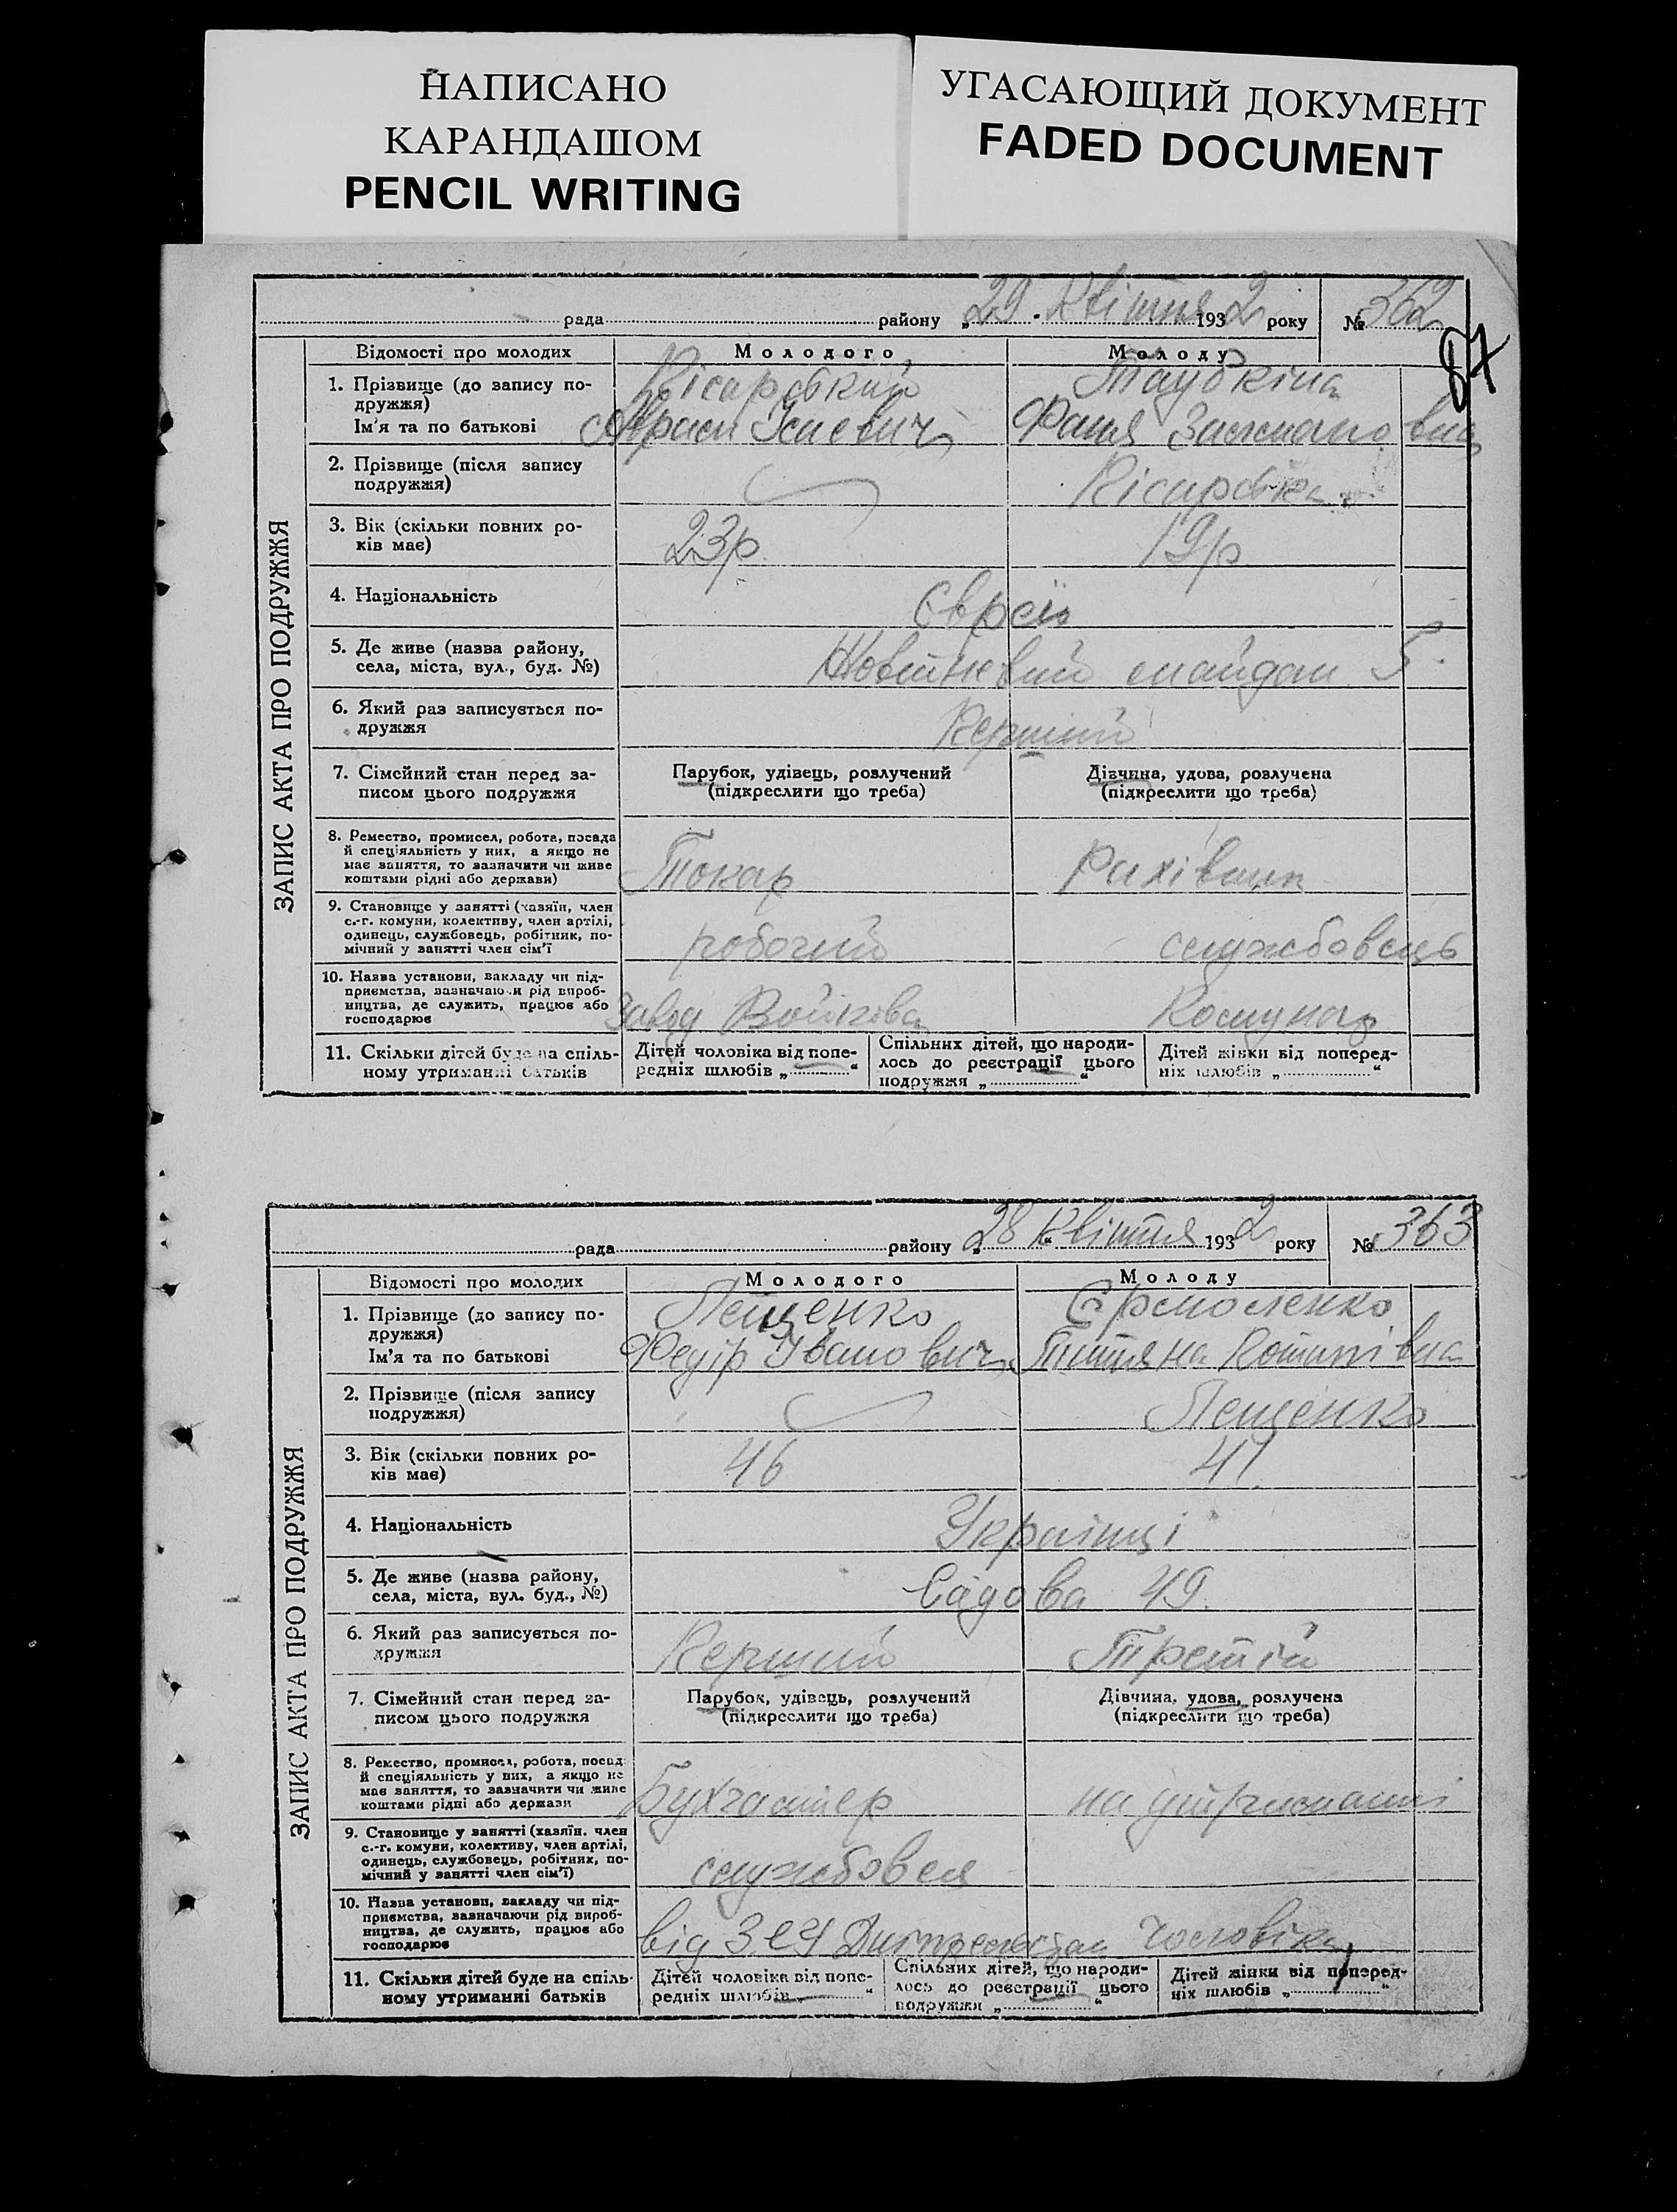 НАПИСАНО
КАРАНДАШОМ
PENCIL WRITING
УГАСАЮЩИЙ ДОКУМЕНТ
FADED DOCUMENT
рада району „29 Квітня 1932 року № 362
87
ЗАПИС АКТА ПРО ПОДРУЖЖЯ
Відомості про молодих Молодого Молоду
1. Прізвище (до запису по-
дружжя)
Ім'я та по батькові
Кісарський
Абрам
Таубкіна
Фаня
2. Прізвище (після запису
подружжя)
Кісарська
3. Вік (скільки повних ро-
ків має)
23р. 19р
4. Національність
Євреї
5. Де живе (назва району,
села, міста, вул., буд. №)
Жовтневий майдан 5
6. Який раз записується по-
дружжя
Перший
7. Сімейний стан перед за-
писом цього подружжя
Парубок, удівець, розлучений
(підкреслити що треба)
Дівчина, удова, розлучена
(підкреслити що треба)
8. Ремество, промисел, робота, посада
й спеціяльність у них, а якщо не
має заняття, то зазначити чи живе
коштами рідні або держави)
Токар Рахівник
9. Становище у занятті (хазяїн, член
с.-г. комуни, колективу, член артілі,
одинець, службовець, робітник, по-
мічний у занятті член сім'ї
робочий службовець
10. Назва установи, закладу чи під-
приємства, зазначаючи рід вироб-
ництва, де служить, працює або
господарює
Завод Войкова Комунар
11. Скільки дітей буде на спіль-
ному утриманні батьків
Дітей чоловіка від попе-
редніх шлюбів „ “
Спільних дітей, що народи-
лось до реєстрації цього
подружжя „ “
Дітей жінки від поперед-
ніх шлюбів „ “
рада району „28“ Квітня 1932 року № 363
ЗАПИС АКТА ПРО ПОДРУЖЖЯ
Відомості про молодих Молодого Молоду
1. Прізвище (до запису по-
дружжя)
Ім'я та по батькові
Лещенко
Федір Іванович
Єрмоленко
Титяна
2. Прізвище (після запису
подружжя)
Лещенко
3. Вік (скільки повних ро-
ків має)
46 41
4. Національність
Українці
5. Де живе (назва району,
села, міста, вул. буд., №)
Садова 49.
6. Який раз записується по-
дружжя
Перший Третій
7. Сімейний стан перед за-
писом цього подружжя
Парубок, удівець, розлучений
(підкреслити що треба)
Дівчина, удова, розлучена
(підкреслити що треба)
8. Ремество, промисел, робота, посад
й спеціяльність у них, а якщо не
має заняття, то зазначити чи живе
коштами рідні або держави
Бухгалтер на утриманні
9. Становище у занятті (хазяїн. член
с.-г. комуни, колективу, член артілі,
одинець, службовець, робітник, по-
мічний у занятті член сім'ї)
10. Назва установи, закладу чи під-
приємства, зазначаючи рід вироб-
ництва, де служить, працює або
господарює
від чоловіка
11. Скільки дітей буде на спіль-
ному утриманні батьків
Дітей чоловіка від попе-
редніх шлюбів „ “
Спільних дітей, що народи-
лось до реєстрації цього
подружжя „ “
Дітей жінки від поперед-
ніх шлюбів „ “